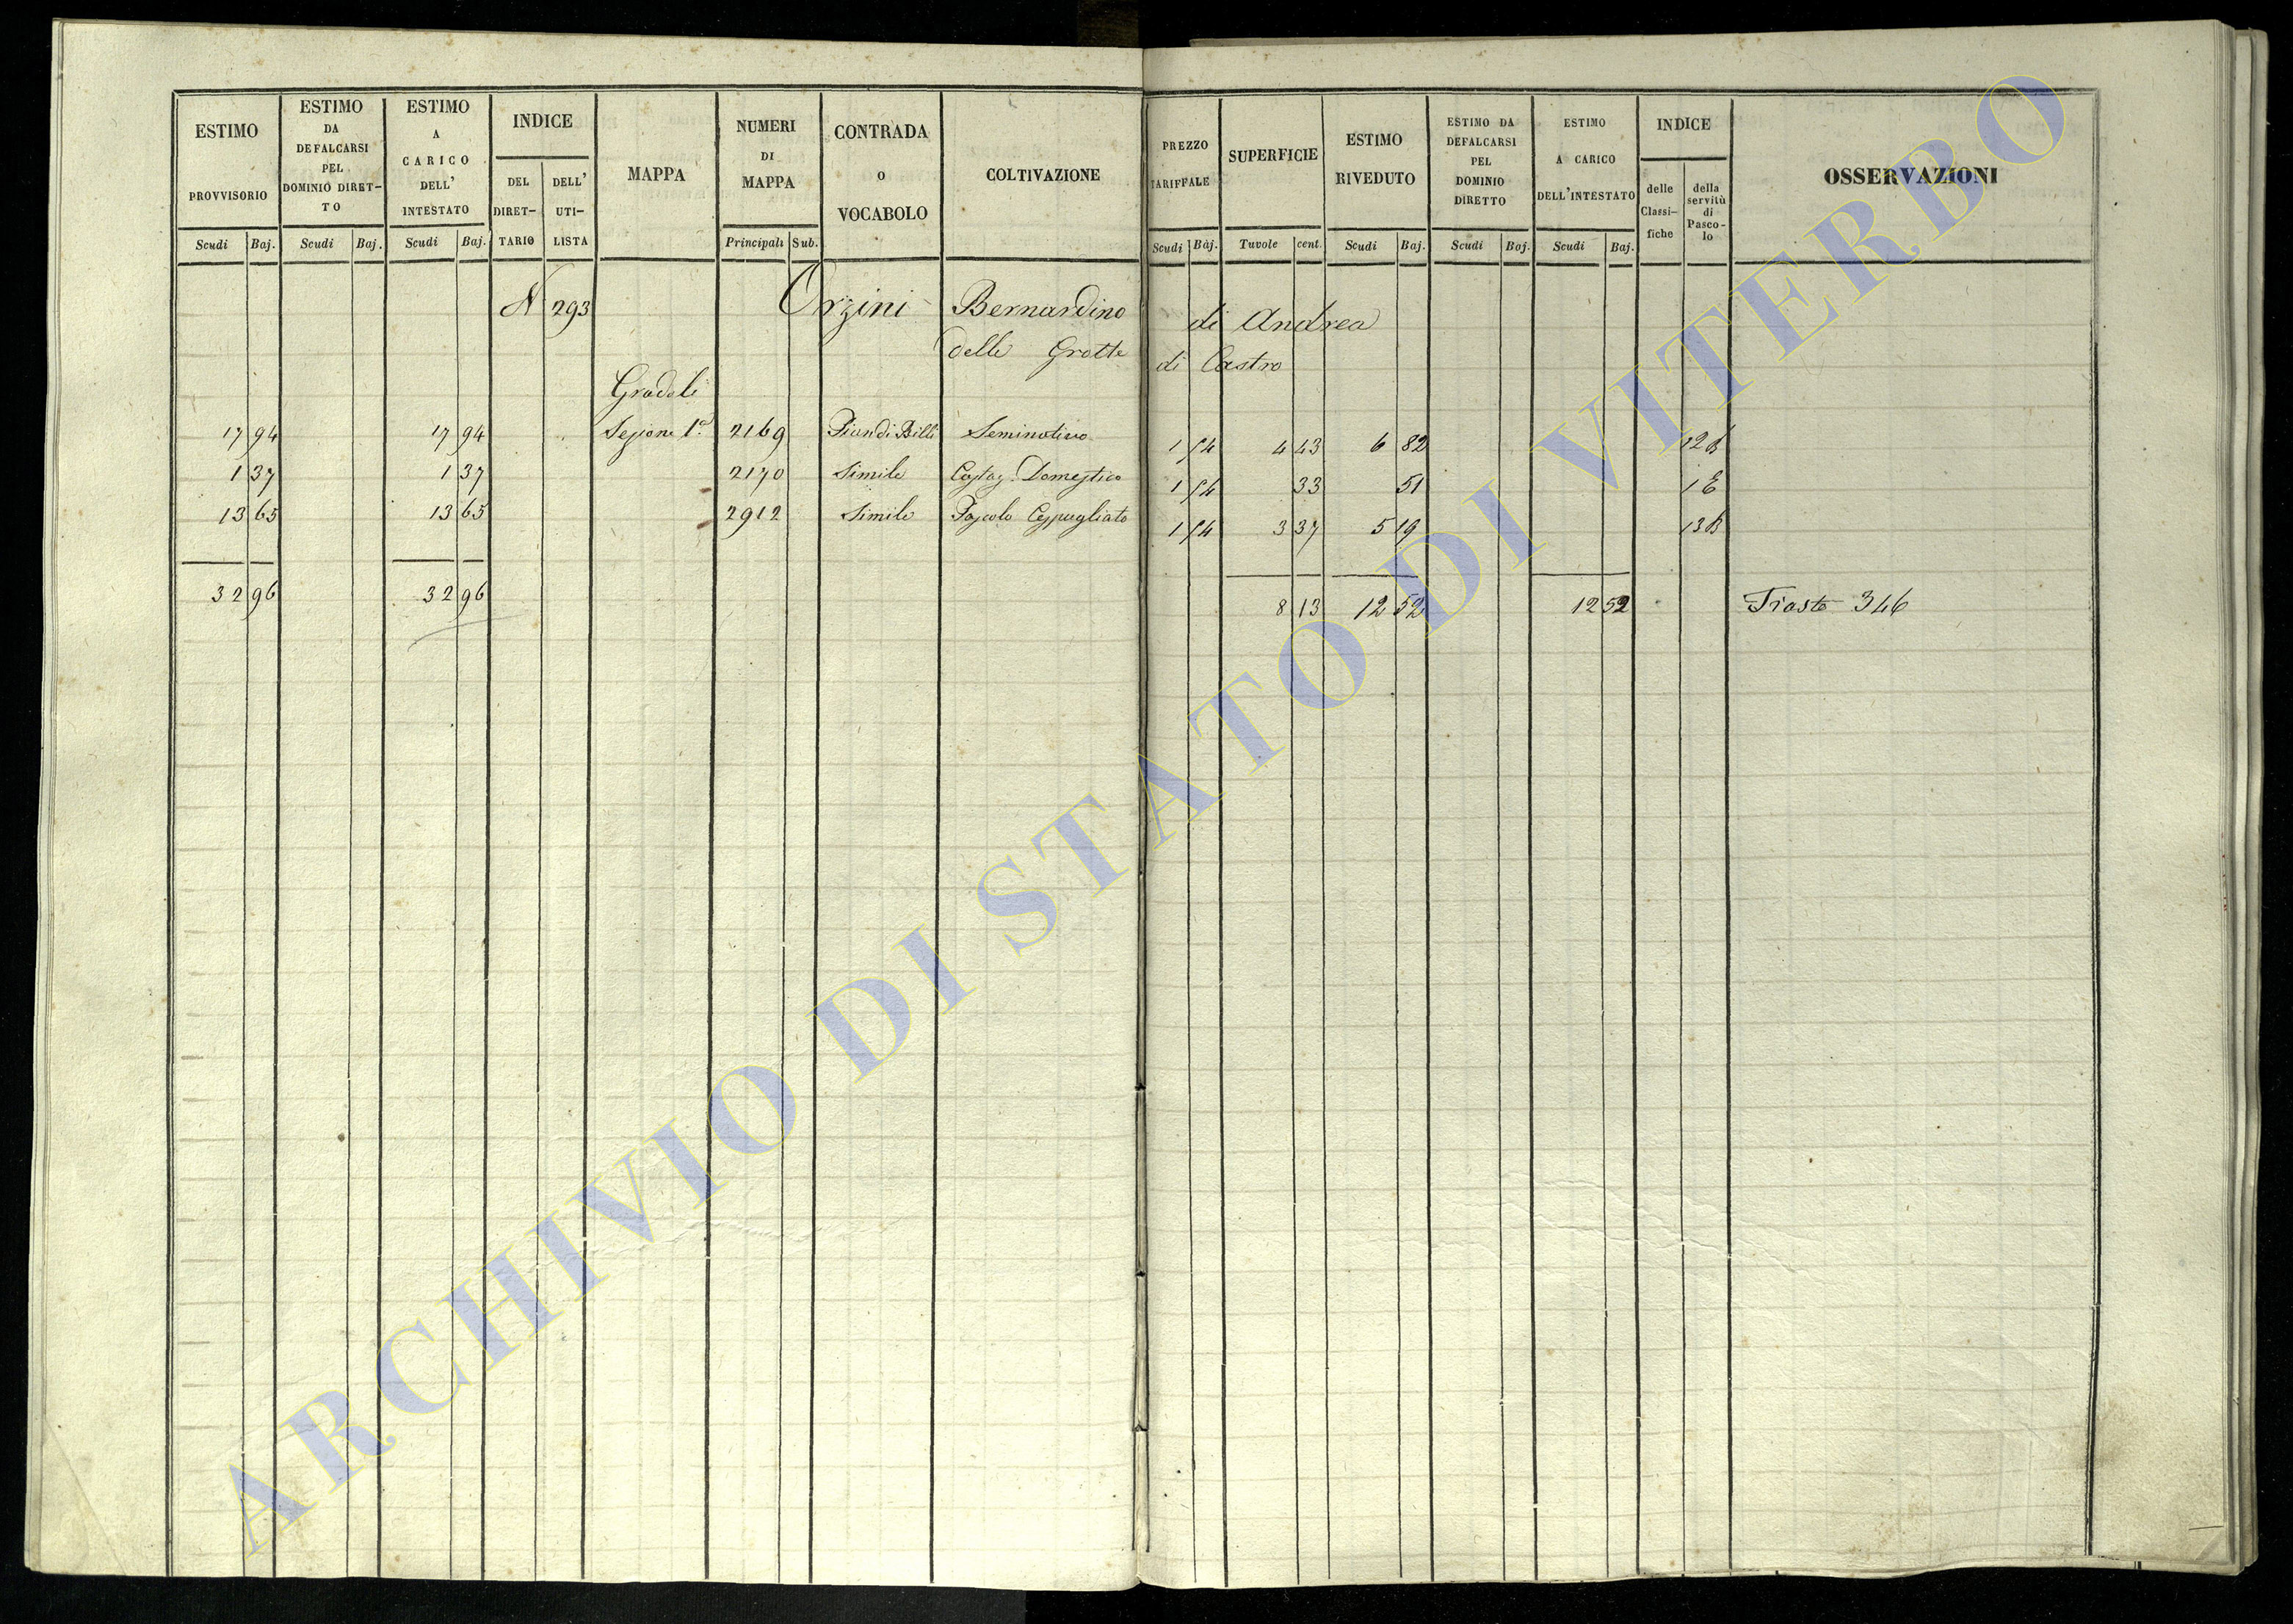 ESTIMO PROVVISORIO Scudi Baj.
ESTIMO DA DEFALCARSI PEL DOMINIO DIRET-TO Scudi Baj.
ESTIMO A CARICO DELL' INTESTATO Scudi Baj.
INDICE DEL DIRET-TARIO DELL' UTI-LISTA
MAPPA
NUMERI DI MAPPA Principali Sub.
CONTRADA O VOCABOLO
COLTIVAZIONE
PREZZO TARIFFALE Scudi Baj.
SUPERFICIE Tavole cent.
ESTIMO RIVEDUTO Scudi Baj.
ESTIMO DA DEFALCARSI PEL DOMINIO DIRETTO Scudi Baj.
ESTIMO A CARICO DELL'INTESTATO Scudi Baj.
INDICE delle Classi-fiche della servitù di Pasco-lo
OSSERVAZIONI
N 293 Orzini Bernardino di Andrea
delle Grotte di Castro
Gradoli
17 94 17 94 Sezione 1a. 2169 Pian di Billi Seminativo 1 54 4 43 6 82 12
1 37 1 37 2170 Simile Castag. Domestico 1 54 33 51 1 E
13 65 13 65 2912 Simile Pascolo Cespugliato 1 54 3 37 5 19 13
32 96 32 96 8 13 12 52 12 52 346
ARCHIVIO DI STATO DI VITERBO